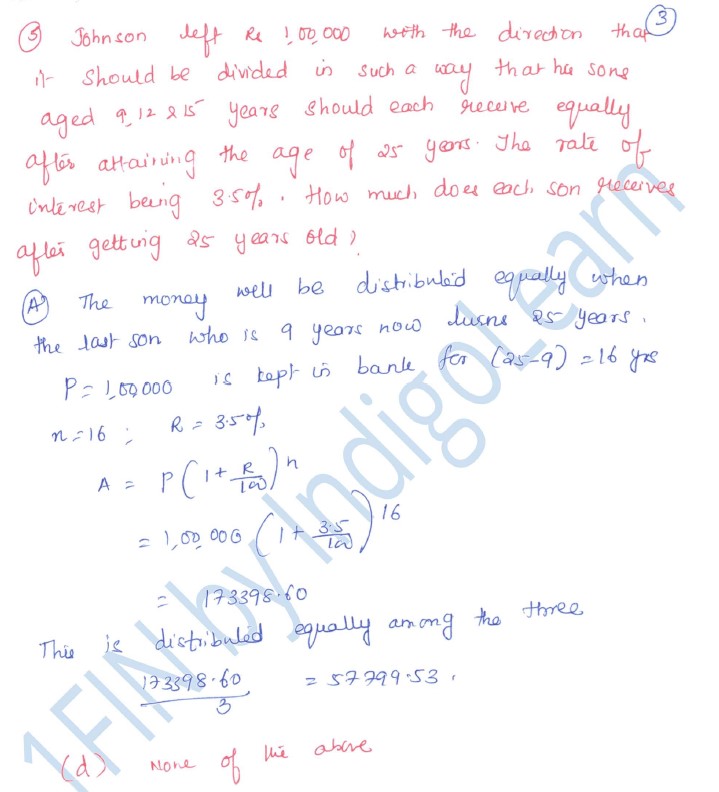 3
5 Johnson left Rs 1,00,000 with the direction that
it should be divided in such a way that his sons
aged 9, 12 & 15 years should each receive equally
after attaining the age of 25 years. The rate of
interest being 3.5%. How much does each son receives
after getting 25 years old?
A The money will be distributed equally when
the last son who is 9 years now turns 25 years.
P = 1,00,000 is kept in bank for (25-9) = 16 yrs
n = 16 ; R = 3.5%
A = P(1 + R/100)^n
= 1,00,000 (1 + 3.5/100)^16
= 173398.60
This is distributed equally among the three
173398.60/3 = 57799.53.
(d) None of the above
1FIN by IndigoLearn